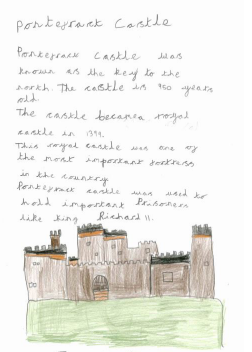 Pontefract Castle
Pontefract Castle was
known as the key to the
north. The castle is 950 years
old.
The castle became a royal
castle in 1399.
This royal castle was one of
the most important fortress
in the country
Pontefract castle was used to
hold important Prisoners
like king Richard II.